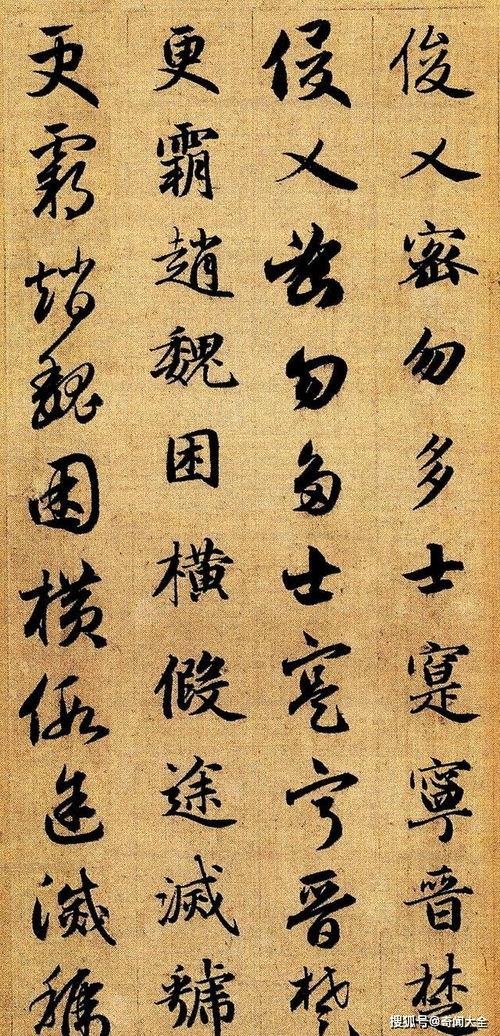 俊乂密勿多士寔寧晉楚
俊乂密勿多士寔寧晉楚
更霸趙魏困橫假途滅虢
更霸趙魏困橫假途滅虢
搜狐号@奇闻大全